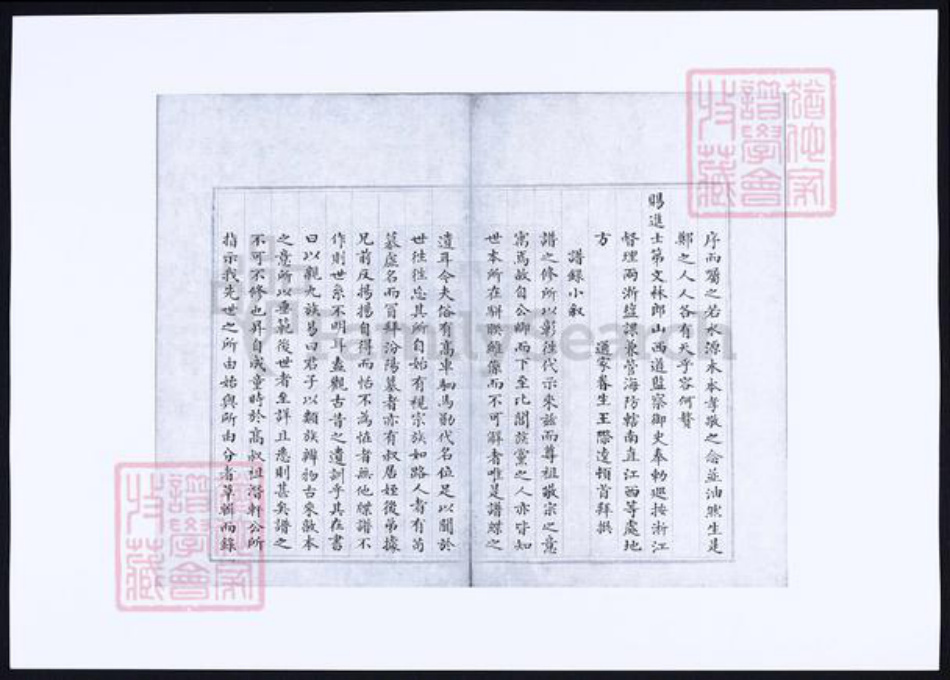 序而屬之若水源木本孝敬之念並油然生是
鄭之人人各有天乎容何贅
賜進士第文林郎山西道監察御史奉勅巡按浙江
督理兩浙鹽課兼管海防轄南直江西等處地
方
通家眷生王際逵頓首拜撰
譜錄小叙
譜之修所以彰往代示來茲而尊祖敬宗之意
寓焉故自公卿而下至比閭族黨之人亦皆知
世本所在駢聯雖像而不可解者唯是譜牒之
遺耳今夫俗有高車駟馬勛代名位足以聞於
世往往忘其所自始有視宗族如路人者有苟
慕虛名而冒拜汾陽墓者亦有叔居姪後弟據
兄前反揚揚自得而恬不為怪者無他牒譜不
作則世系不明耳盍觀古昔之遺訓乎其在書
曰以親九族易曰君子以類族辨物古來敦本
之意所以垂範後世者至詳且悉則甚矣譜之
不可不修也昇自成童時於高叔祖潛軒公所
指示我先世之所由始與所由分者草輯而錄
猶他家譜學會收藏
猶他家譜學會收藏
FamilySearch